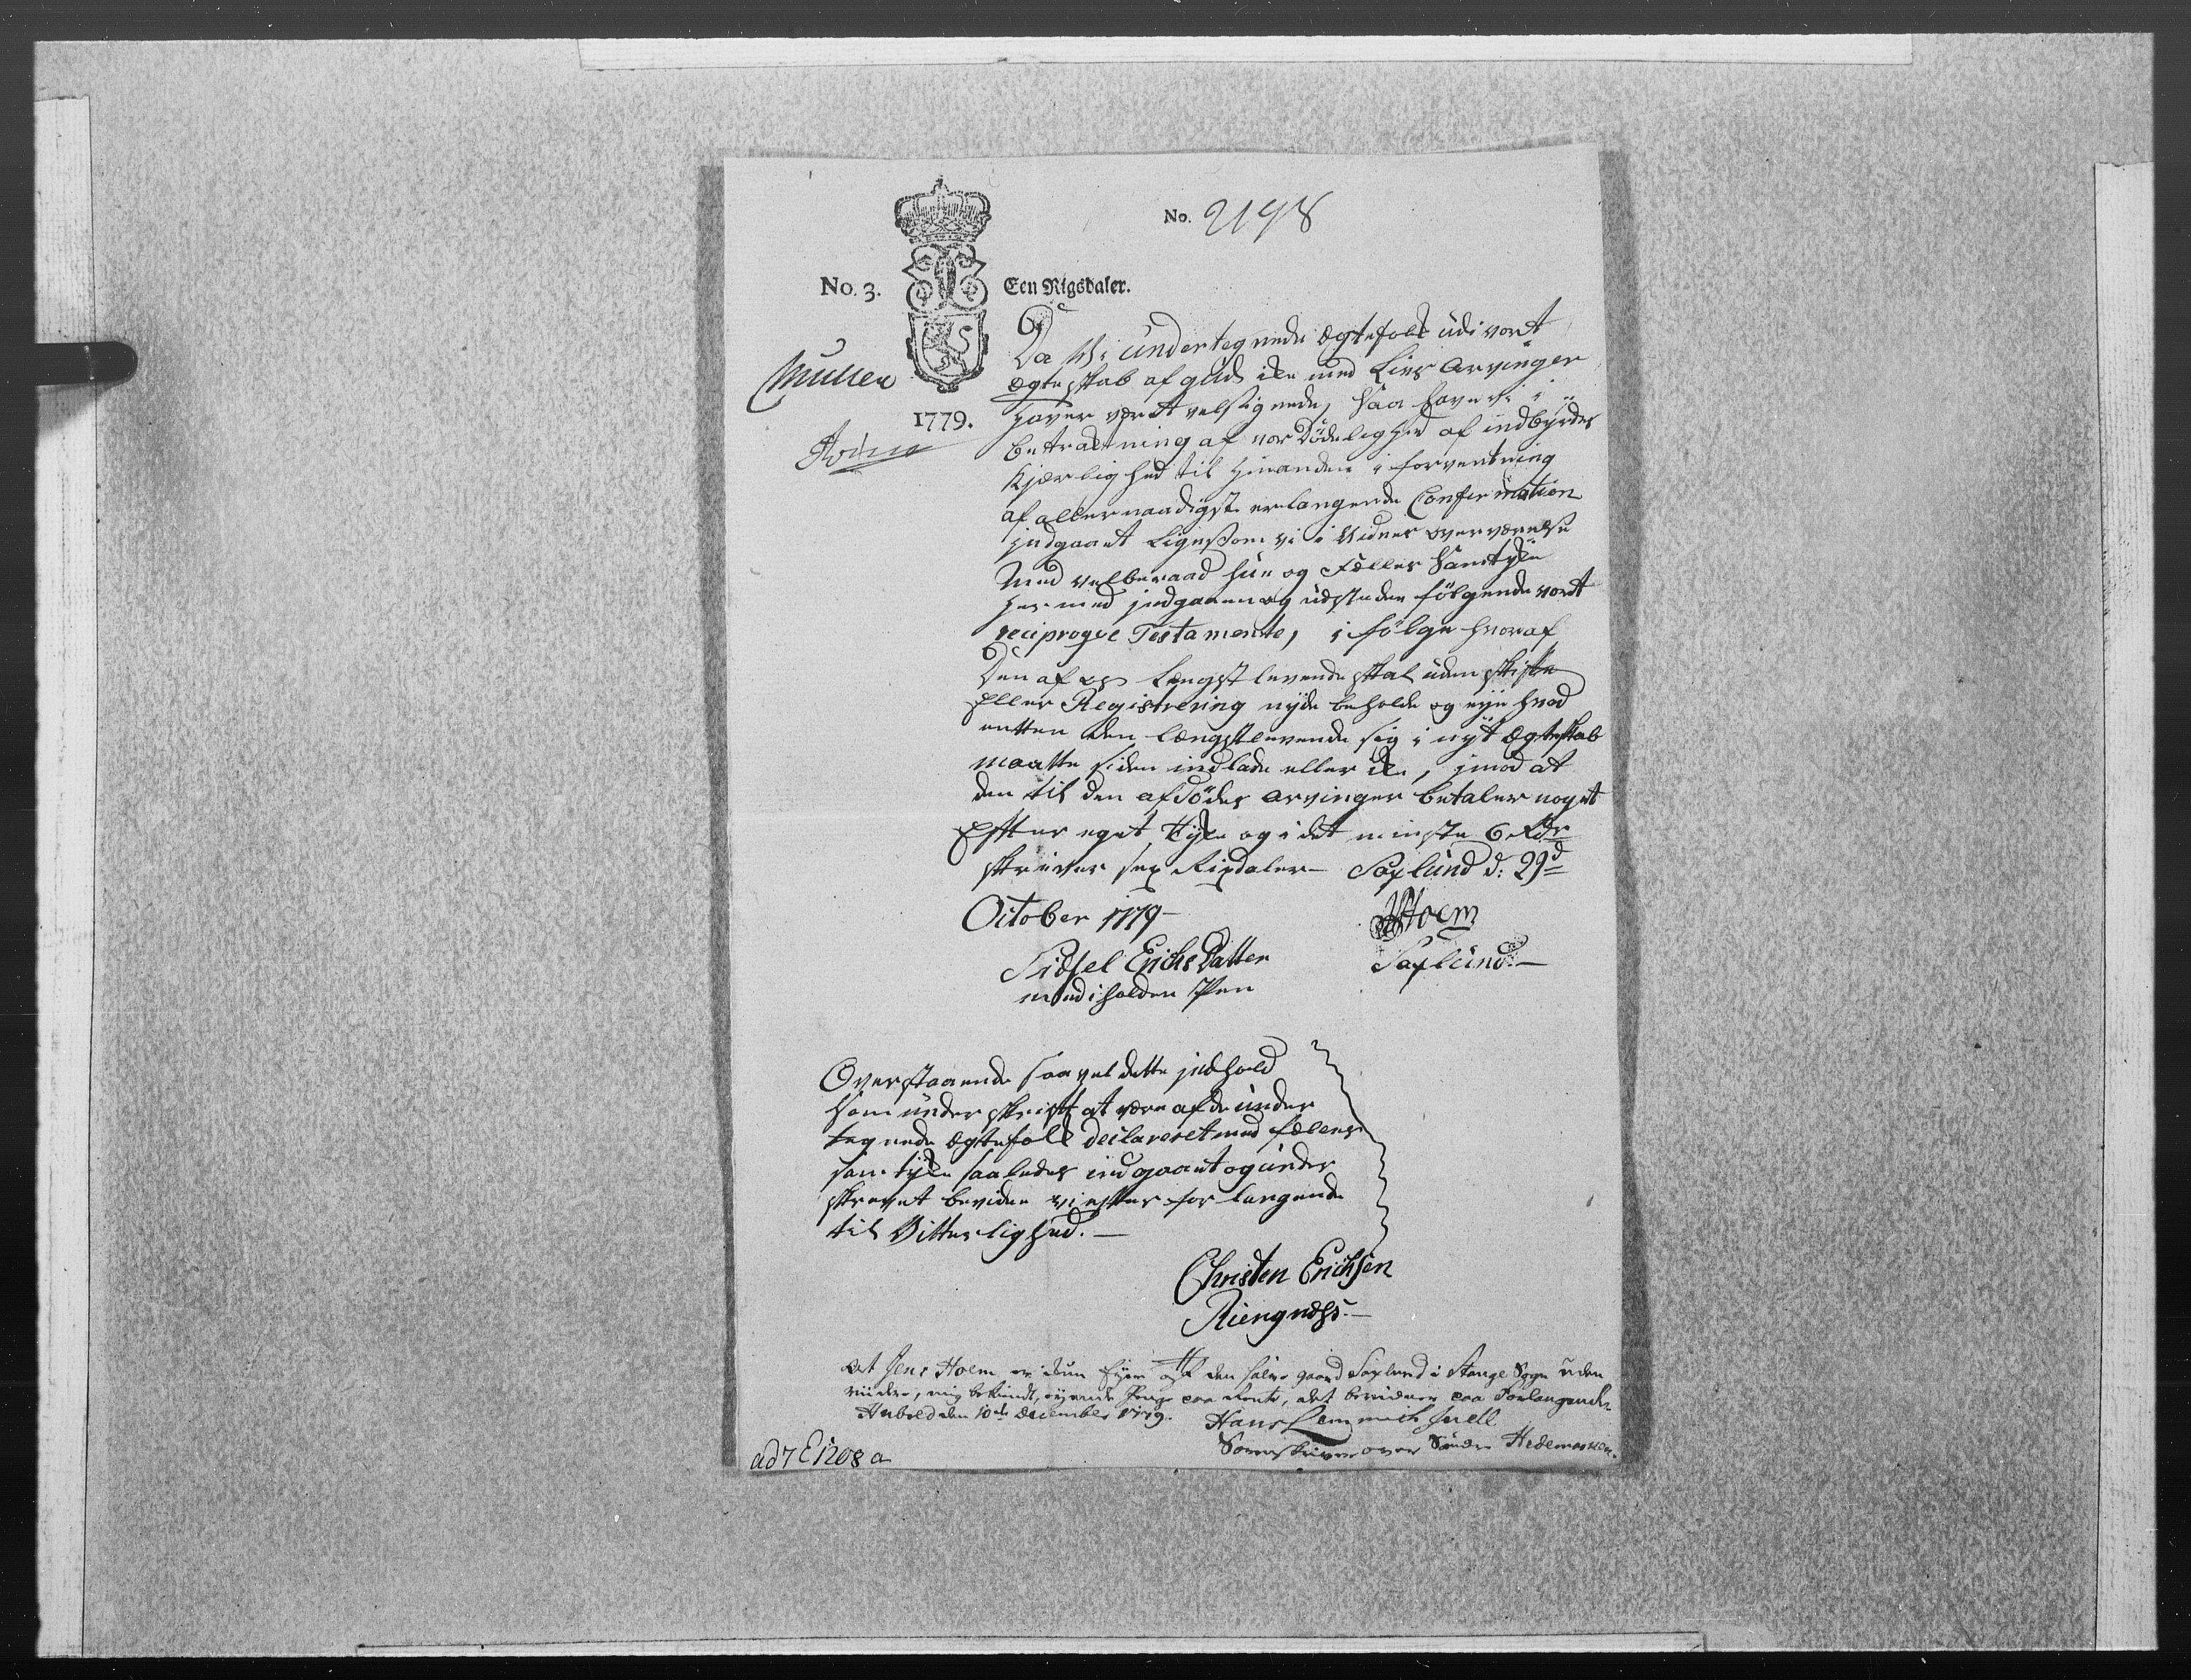 No. 2198
No. 3. Een Rigsdaler.
1779.
Da Wi undertegnede Ægtefolk udi vort
Ægteskab af Gud ike med Livs Arvinger
haver været velsignede, saa have vi i
betragtning af vor Dödelighed af indbyrdes
Kjærlighed til hinanden i forventning
af allernaadigst erlangende Confirmation
indgaaet ligesom vi i Vidners overværelse
med velberaad hue og Fælles Samtyke
hermed indgaaer og udsteder fölgende vort
reciproque Testamente, i fölge hvoraf
Den af os længst levende skal uden skifte
eller Registrering nyde beholde og eye hvad
enten den længstlevende sig i nyt Ægteskab
maatte siden indlade eller ike, imod at
den til den afdödes Arvinger betaler noget
Efter eget Tyke og i det minste 6 Rdr
skriver sex Rixdaler – Saxlund d: 29d
October 1779 –
JHoem
Saxlund. –
Sidsel Erichs Datter
med iholden Pen
Overstaaende saavel dette indhold
som underskrift at være af de under
tegnede Ægtefolk declareret med fælles
samtyke saaledes indgaaet og under
skrevet bevidner vi efter forlangende
til Vitterlighed. –
Christen Erichsen
At Jens Hoem er ikun Eyer af den halve gaard Saxlund i Stange Sogn uden
viidere, mig bekiendt, eyende Penge paa Rente, det bevidner paa Forlangende
den 10de December 1779. Hans Lemmich Juell
Sorenskriver over Söndre Hedemarken.
ad 7 E 1208 a